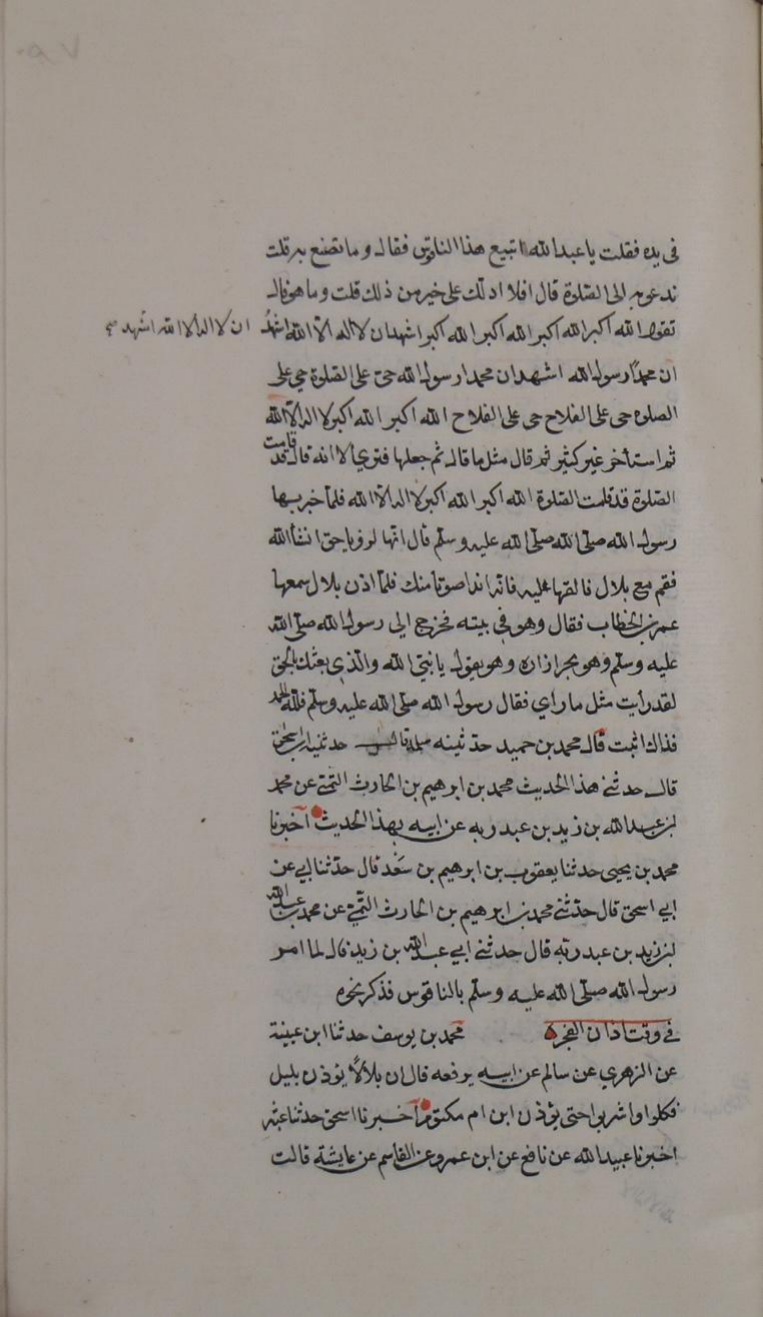 في يده فقلت يا عبد الله اتبيع هذا الناقوس فقال وما تصنع به قلت
ندعو به الى الصلوة قال افلا ادلك على خير من ذلك قلت وما هو قال
تقول الله اكبر الله اكبر الله اكبر الله اكبر اشهد ان لا اله الا الله اشهد
ان لا اله الا الله اشهد صح
ان محمدا رسول الله اشهد ان محمدا رسول الله حي على الصلوة حي على
الصلوة حي على الفلاح حي على الفلاح الله اكبر الله اكبر لا اله الا الله
ثم استأخر غير كثير ثم قال مثل ما قال ثم جعلها فتري الا انه قال قد قامت
الصلوة قد قامت الصلوة الله اكبر الله اكبر لا اله الا الله فلما خبر بها
رسول الله صلى الله صلى الله عليه وسلم قال انها لرؤيا حق انشأ الله
فقم مع بلال فالقها عليه فانه اندا صوتا منك فلما اذن بلال سمعها
عمر بن الخطاب فقال وهو في بيته فخرج الى رسول الله صلى الله
عليه وسلم وهو يجر ازاره وهو يقول يا نبي الله والذي بعثك بالحق
لقد رأيت مثل ما راي فقال رسول الله صلى الله عليه وسلم فلله الحمد
فذاك اثبت قال محمد بن حميد حدثنيه سلمة قال حدثنيه ابن اسحق
قال حدثني هذا الحديث محمد بن ابرهيم بن الحارث التيمي عن محمد
بن عبد الله بن زيد بن عبد ربه عن ابيه بهذا الحديث اخبرنا
محمد بن يحيى حدثنا يعقوب بن ابرهيم بن سعد قال حدثنا ابي عن
ابي اسحق قال حدثني محمد بن ابرهيم بن الحارث التيمي عن محمد بن عبد الله
بن زيد بن عبد ربه قال حدثني ابي عبد الله بن زيد قال لما امر
رسول الله صلى الله عليه وسلم بالناقوس فذكر نحوه
في وقت اذان الفجر محمد بن يوسف حدثنا ابن عيينة
عن الزهري عن سالم عن ابيه يرفعه قال ان بلالا يوذن بليل
فكلوا واشربوا حتى يؤذن ابن ام مكتوم اخبرنا اسحق حدثنا عبدة
اخبرنا عبيد الله عن نافع عن ابن عمر وعن القاسم عن عايشة قالت